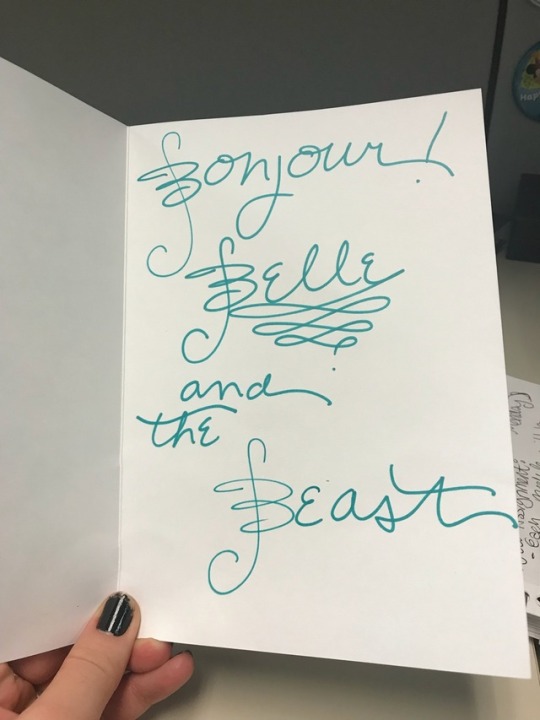 Bonjour!
Belle
and
the
Beast